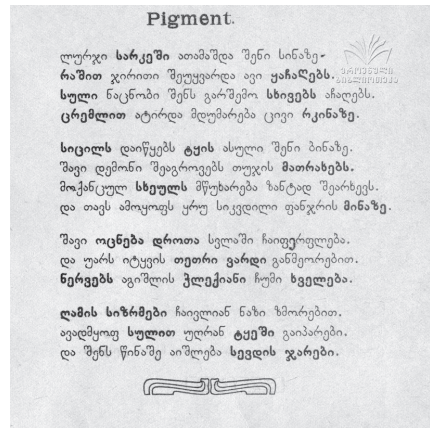 Pigment.
ეროვნული
ბიბლიოთეკა
ლურჯი სარკეში ათამაშდა შენი სინაზე-
რაშით ჯირითი შეუყვარდა ავი ყაჩაღებს.
სული ნაცნობი შენს გარშემო სხივებს აჩაღებს.
ცრემლით ატირდა მდუმარება ცივი რკინაზე.
სიცილს დაიწყებს ტყის ასული შენი ბინაზე.
შავი დემონი შეაგროვებს თუჯის მათრახებს.
მოქანცულ სხეულს მწუხარება ზანტად შეარხევს.
და თავს ამოყოფს ყრუ სიკვდილი ფანჯრის მინაზე.
შავი ოცნება დროთა სვლაში ჩაიფერფლება.
და უარს იტყვის თეთრი ვარდი განმეორებით.
ნერვებს აგიშლის ჭლექიანი ჩუმი ხველება.
ღამის სიზრმები ჩაივლიან ნაზი ზმორებით.
ავადმყოფ სულით უღრან ტყეში გაიპარები.
და შენს წინაშე აიშლება სევდის ჯარები.